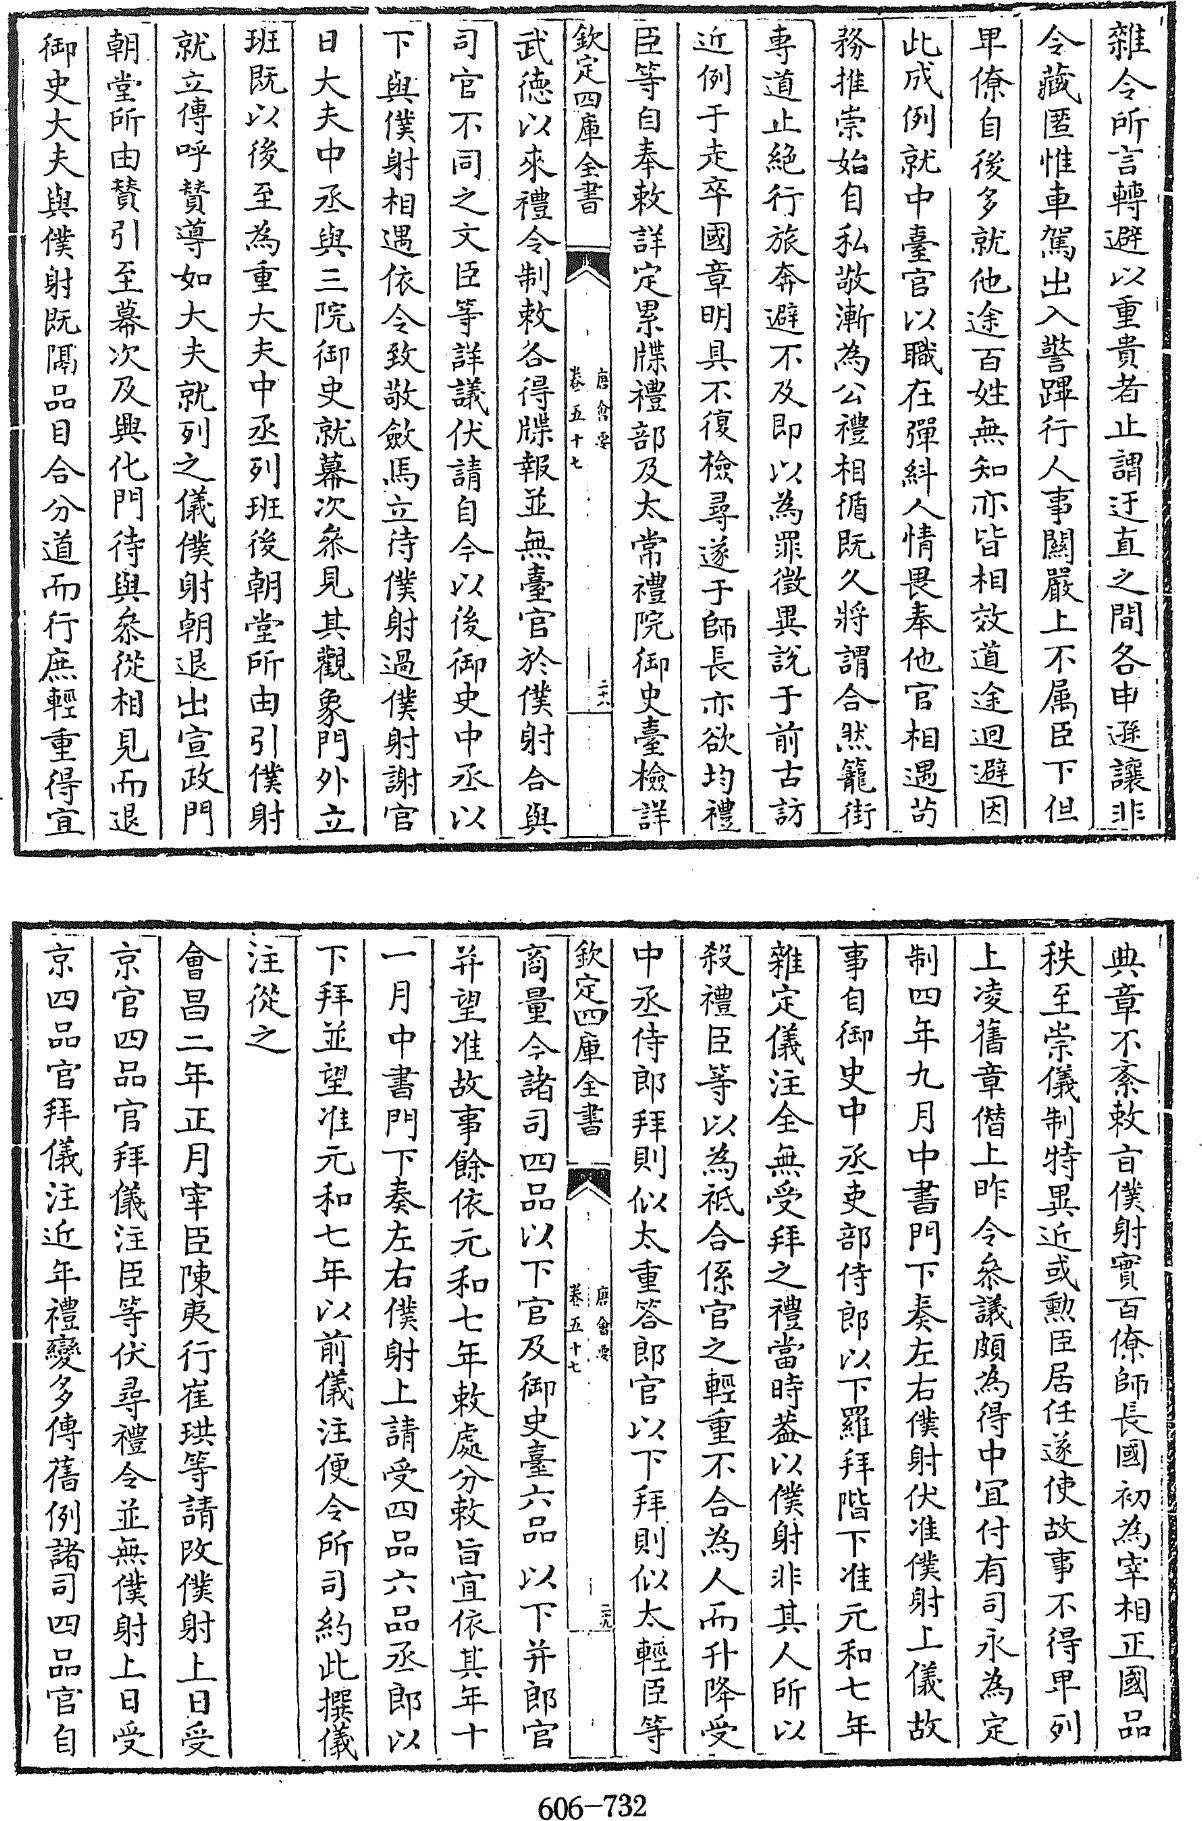 雜令所言轉避以重貴者止謂迂直之間各申遜讓非
令藏匿惟車駕出入警蹕行人事關嚴上不属臣下但
卑僚自後多就他途百姓無知亦皆相效道途迴避因
此成例就中臺官以職在彈糾人情畏奉他官相遇苟
務推崇始自私敬漸為公禮相循既久將謂合然籠街
専道止絶行旅奔避不及即以為罪徵異說于前古訪
近例于走卒國章明具不復檢尋遂于師長亦欲均禮
臣等自奉敕詳定累牒禮部及太常禮院御史臺檢詳
欽定四庫全書
唐會要
卷五十七
二六
武德以來禮令制敕各得牒報並無臺官於僕射合與
司官不同之文臣等詳議伏請自今以後御史中丞以
下與僕射相遇依令致敬斂馬立待僕射過僕射謝官
日大夫中丞與三院御史就幕次叅見其觀象門外立
班既以後至為重大夫中丞列班後朝堂所由引僕射
就立傳呼贊導如大夫就列之儀僕射朝退出宣政門
朝堂所由贊引至幕次及興化門待與叅從相見而退
御史大夫與僕射既隔品目合分道而行庶輕重得宜
典章不紊敕㫖僕射實百僚師長國初為宰相正國品
秩至崇儀制特異近或勲臣居任遂使故事不得卑列
上凌舊章僭上昨令叅議頗為得中宜付有司永為定
制四年九月中書門下奏左右僕射伏准僕射上儀故
事自御史中丞吏部侍郎以下羅拜階下准元和七年
雜定儀注全無受拜之禮當時葢以僕射非其人所以
殺禮臣等以為祗合係官之輕重不合為人而升降受
中丞侍郎拜則似太重答郎官以下拜則似太輕臣等
欽定四庫全書
唐會要
卷五十七
二九
商量今諸司四品以下官及御史臺六品以下并郎官
并望准故事餘依元和七年敕處分敕旨宜依其年十
一月中書門下奏左右僕射上請受四品六品丞郎以
下拜並望准元和七年以前儀注便令所司約此撰儀
注從之
會昌二年正月宰臣陳夷行崔珙等請改僕射上日受
京官四品官拜儀注臣等伏尋禮令並無僕射上日受
京四品官拜儀注近年禮變多傳舊例諸司四品官自
606-732